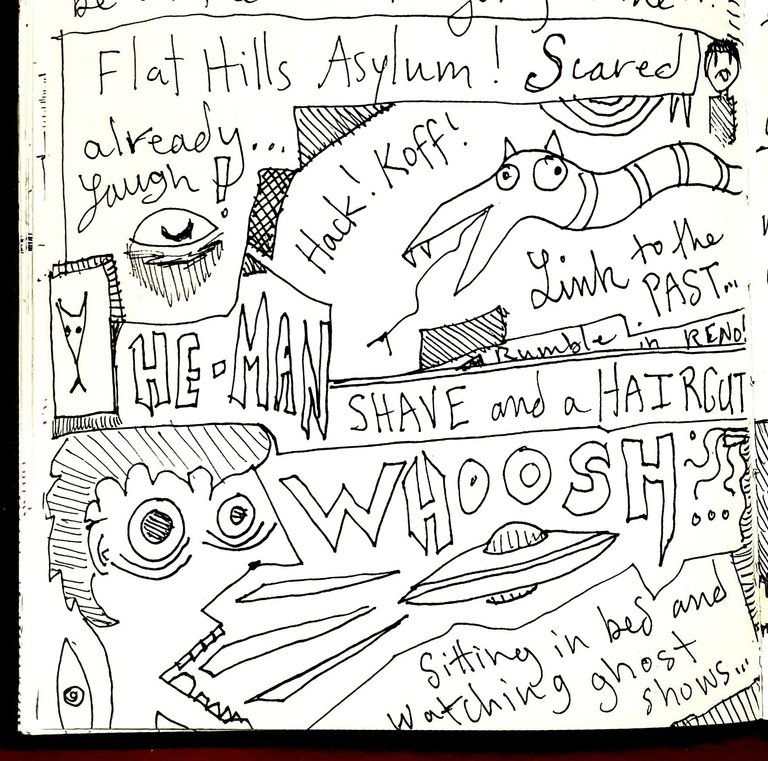 Flat Hills Asylum! Scared
already...
Laugh!
Hack! Koff!
Link to the
PAST...
HE-MAN
Rumble in RENO!
SHAVE and a HAIRCUT
WHOOSH...
Sitting in bed and
watching ghost
shows...